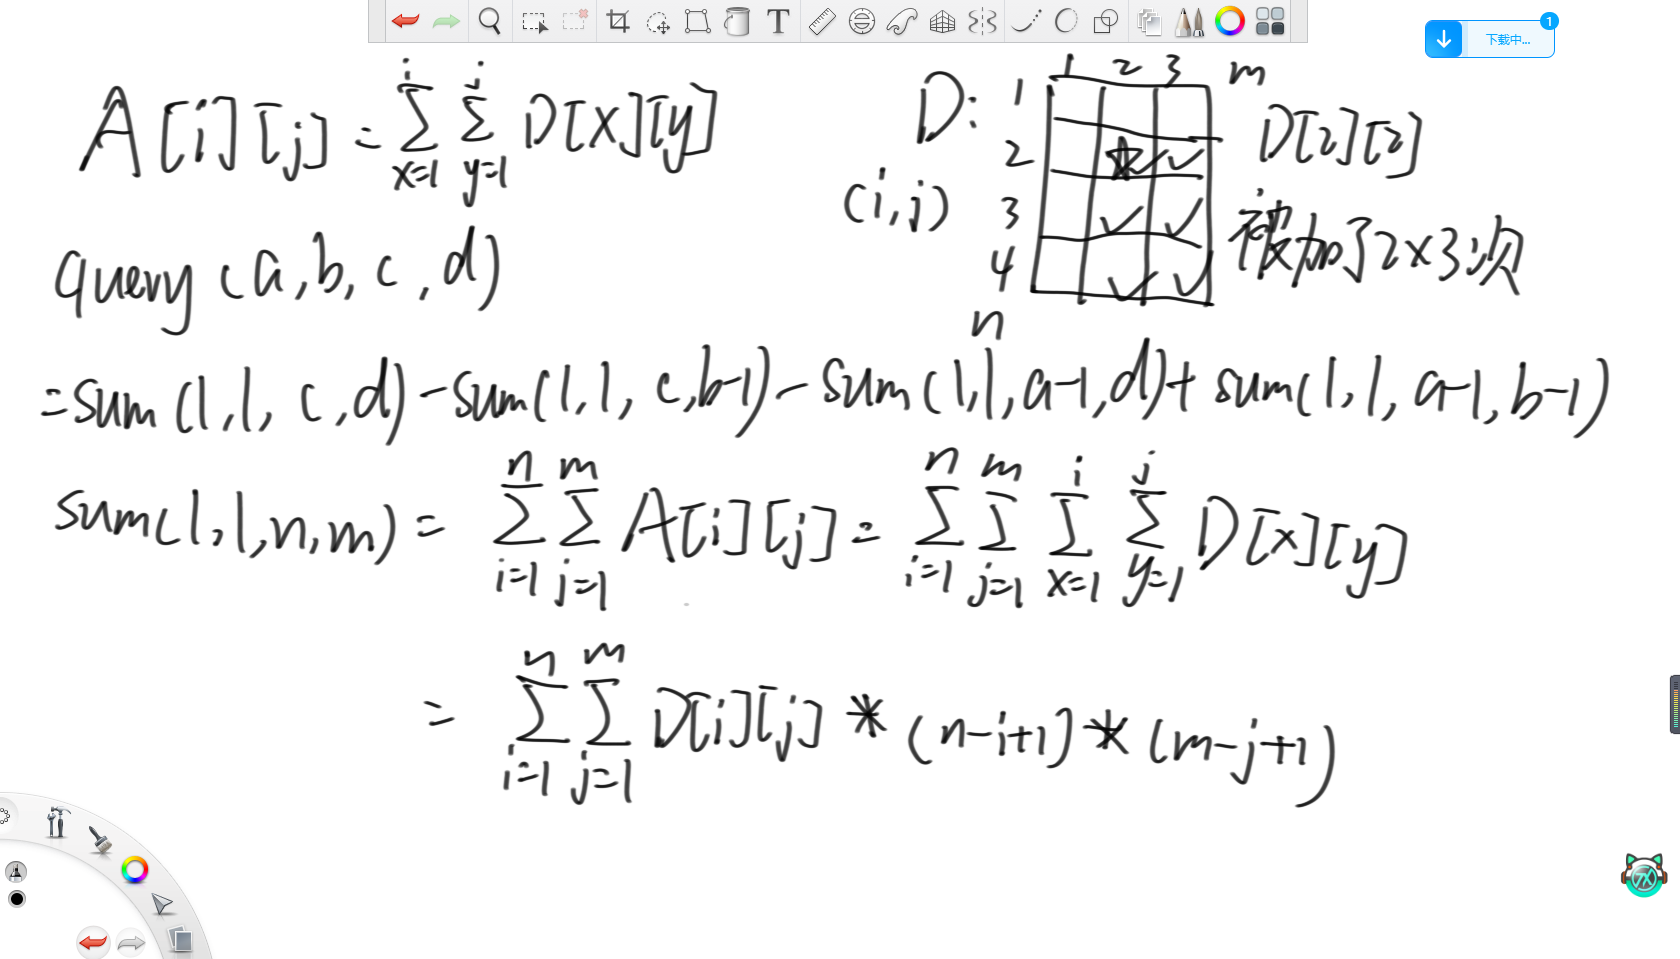 下载中...
1
A[i][j] = ∑_{x=1}^{i} ∑_{y=1}^{j} D[x][y]
D:
1 2 3 m
1
2
3
4
n
D[2][2]
(i,j)
被加了2×3次
query(a,b,c,d)
=sum(1,1,c,d)-sum(1,1,c,b-1)-sum(1,1,a-1,d)+sum(1,1,a-1,b-1)
sum(1,1,n,m) = ∑_{i=1}^{n} ∑_{j=1}^{m} A[i][j] = ∑_{i=1}^{n} ∑_{j=1}^{m} ∑_{x=1}^{i} ∑_{y=1}^{j} D[x][y]
= ∑_{i=1}^{n} ∑_{j=1}^{m} D[i][j] * (n-i+1) * (m-j+1)